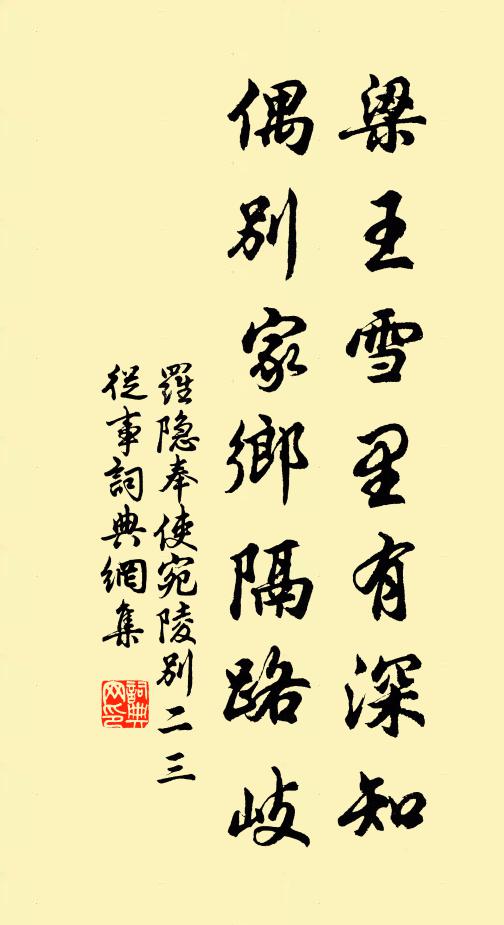 梁王雪里有深知
偶别家鄉隔路岐
羅隐奉使宛陵别二三
從事詞典網集
詞典网印